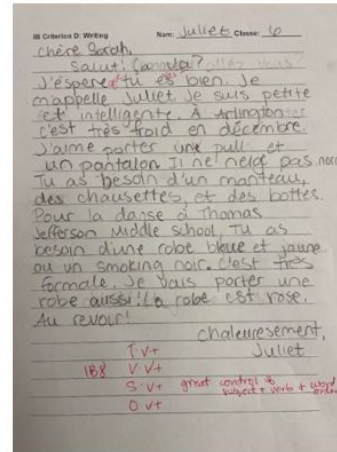 IB Criterion D: Writing Name: Juliet Classe: 6
Chère Sarah,
Salut! Ça va?
J'espere tu es bien. Je
m'appelle Juliet. Je suis petite
et intelligente. À Arlington
c'est très froid en décembre.
J'aime porter une pull et
un pantalon. Il ne neige pas.
Tu as besoin d'un manteau,
des chausettes, et des bottes.
Pour la danse à Thomas
Jefferson Middle school, Tu as
besoin d'une robe bleue et jaune
ou un smoking noir. C'est très
formale. Je vais porter une
robe aussi! La robe est rose.
Au revoir!
chaleuresement,
T V+ Juliet
IB8 V V+
S V+ great control of subject + verb + word order
O V+